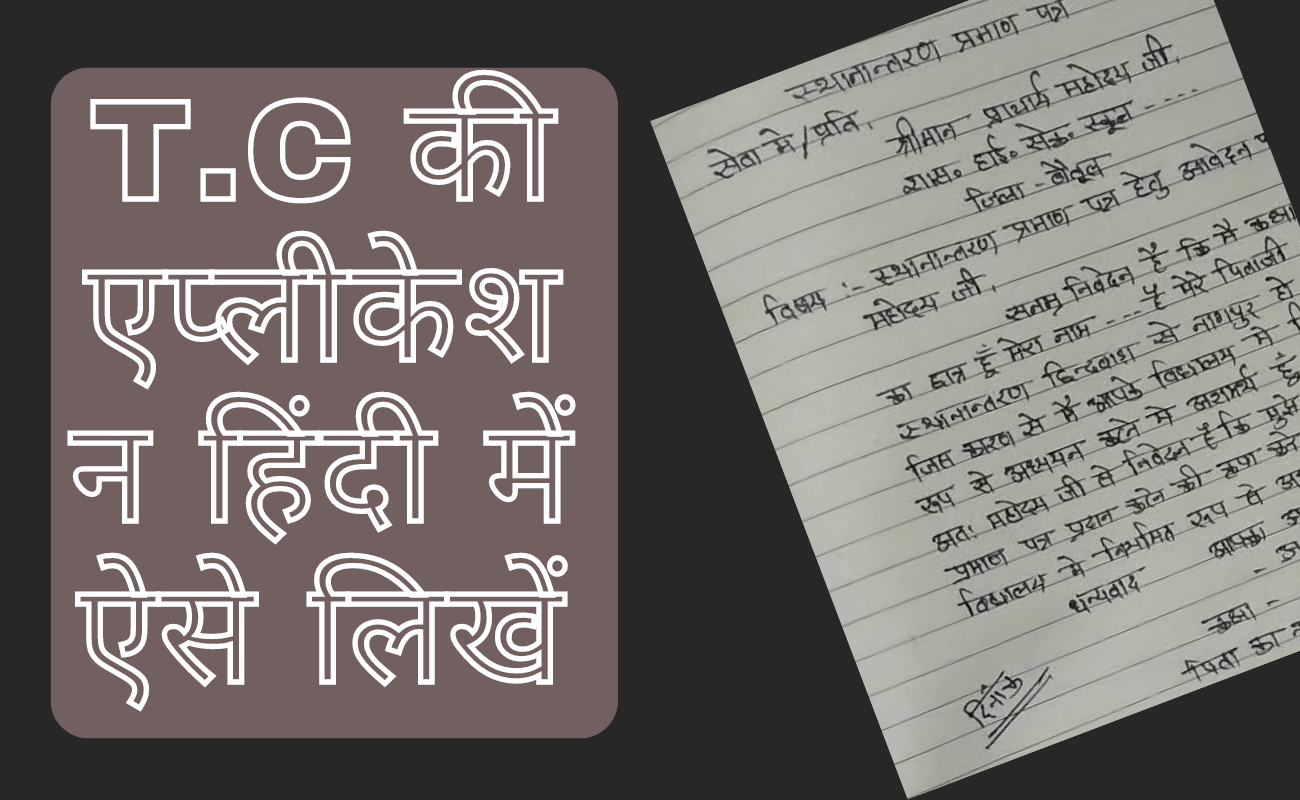 T.C की
एप्लीकेश
न हिंदी में
ऐसे लिखें
स्थानान्तरण प्रमाण पत्र
सेवा मे/प्रति,
श्रीमान प्राचार्य महोदय जी,
शास० हाई० सेक० स्कूल ----
जिला - बैतूल
विषय :- स्थानान्तरण प्रमाण पत्र हेतु आवेदन
महोदय जी,
सनम्र निवेदन है कि मै कक्षा
का छात्र हूँ मेरा नाम --- है मेरे पिताजी
स्थानान्तरण छिन्दवाडा से नागपुर हो
जिस कारण से मै आपके विद्यालय मे
रूप से अध्ययन करने मे असमर्थ हूँ
अतः महोदय जी से निवेदन है कि मुझे
प्रमाण पत्र प्रदान करने की कृपा करे
विद्यालय मे नियमित रूप से
धन्यवाद
आपका
कक्षा -
पिता का
दिनाँक